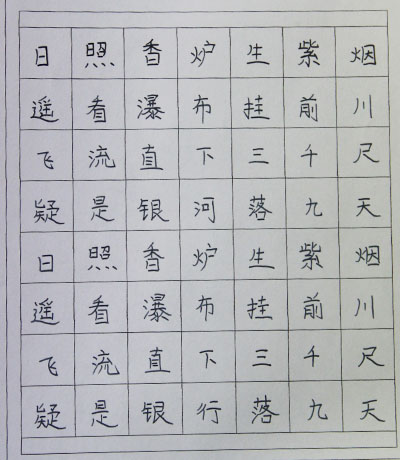 日照香炉生紫烟
遥看瀑布挂前川
飞流直下三千尺
疑是银河落九天
日照香炉生紫烟
遥看瀑布挂前川
飞流直下三千尺
疑是银行落九天